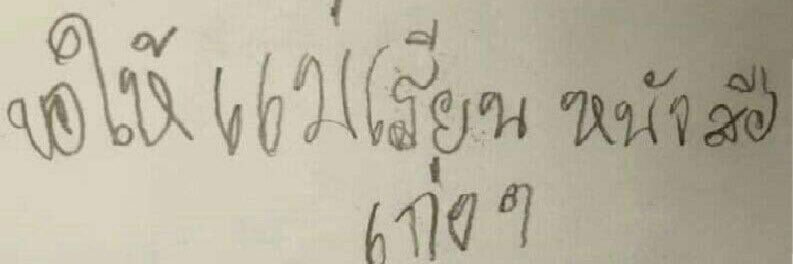 ขอให้แม่เรียน หนังสือ
เก่งๆ